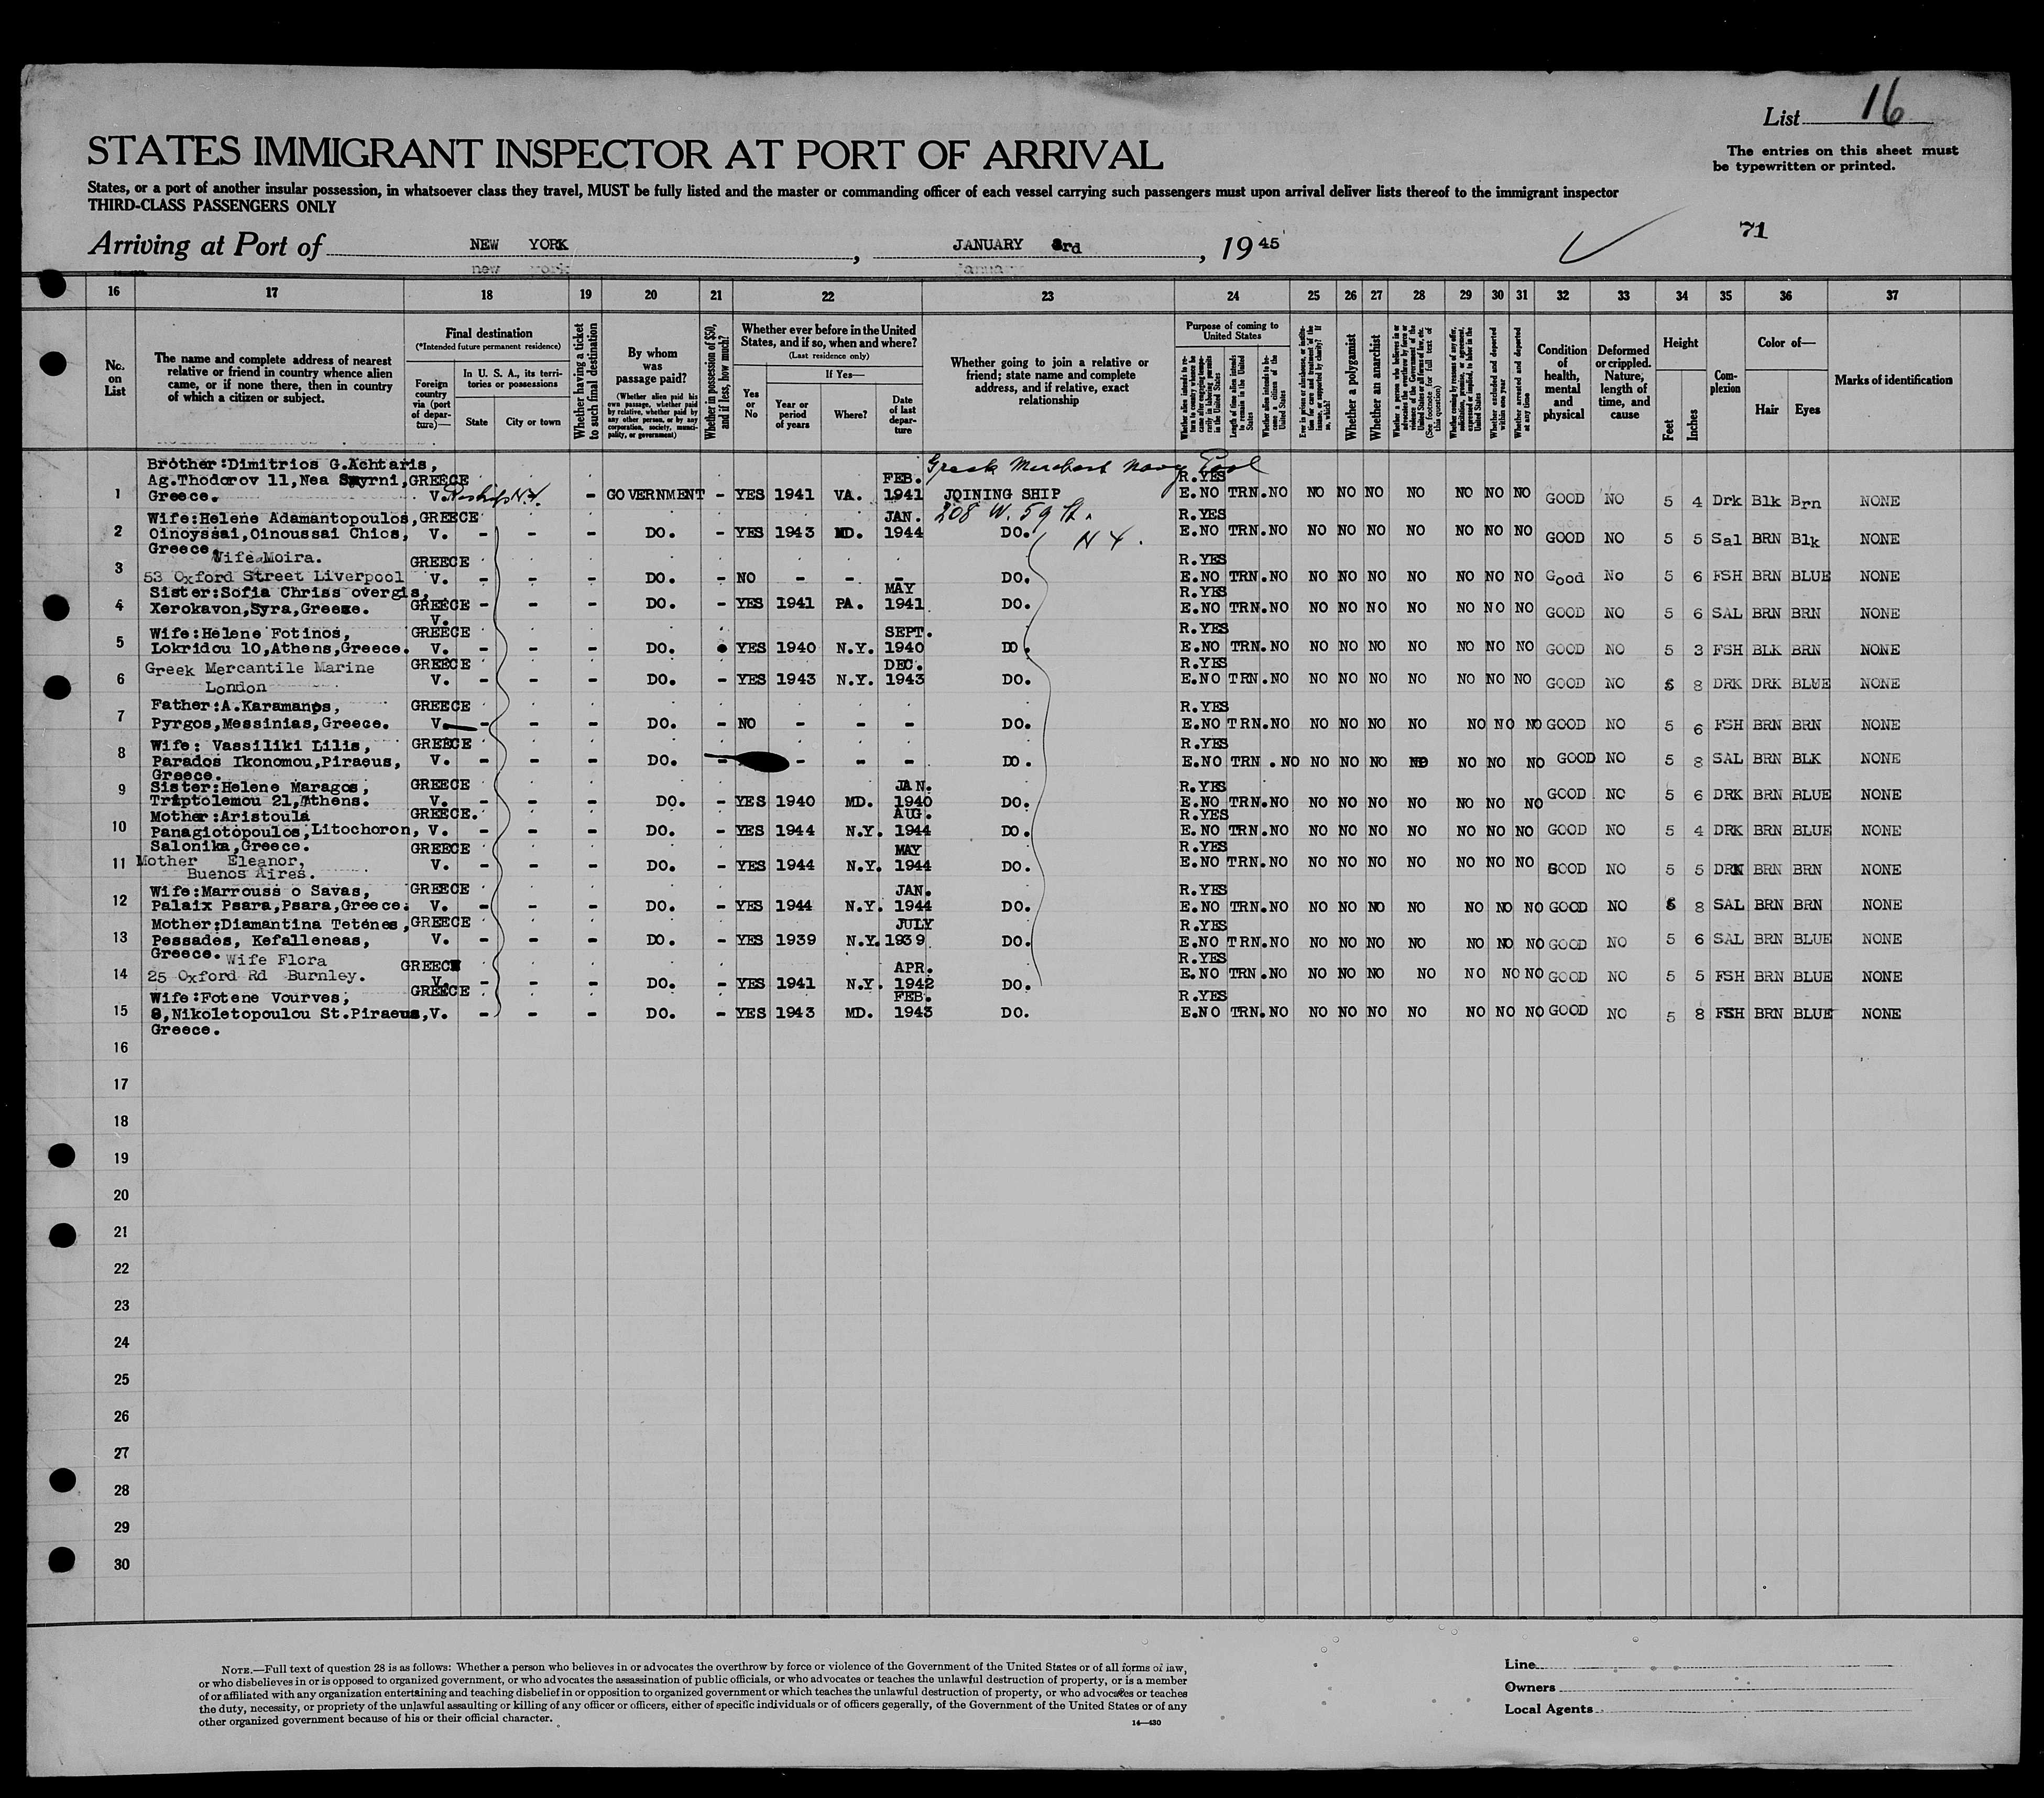 List 16
STATES IMMIGRANT INSPECTOR AT PORT OF ARRIVAL
The entries on this sheet must
be typewritten or printed.
States, or a port of another insular possession, in whatsoever class they travel, MUST be fully listed and the master or commanding officer of each vessel carrying such passengers must upon arrival deliver lists thereof to the immigrant inspector
THIRD-CLASS PASSENGERS ONLY
71
Arriving at Port of NEW YORK, JANUARY 3rd, 1945
new york january
16 17 18 19 20 21 22 23 24 25 26 27 28 29 30 31 32 33 34 35 36 37
No. on List
The name and complete address of nearest relative or friend in country whence alien came, or if none there, then in country of which a citizen or subject.
Final destination
(*Intended future permanent residence)
Foreign country via (port of departure)—
In U. S. A., its territories or possessions
State
City or town
Whether having a ticket to such final destination
By whom was passage paid?
(Whether alien paid his own passage, whether paid by relative, whether paid by any other person, or by any corporation, society, municipality, or government)
Whether in possession of $50, and if less, how much?
Whether ever before in the United States, and if so, when and where?
(Last residence only)
Yes or No
If Yes—
Year or period of years
Where?
Date of last departure
Whether going to join a relative or friend; state name and complete address, and if relative, exact relationship
Purpose of coming to United States
Whether alien intends to return to country whence he came after engaging temporarily in laboring pursuits in the United States
Length of time alien intends to remain in the United States
Whether alien intends to become a citizen of the United States
Ever in prison or almshouse, or institution for care and treatment of the insane, or supported by charity? If so, which?
Whether a polygamist
Whether an anarchist
Whether a person who believes in or advocates the overthrow by force or violence of the Government of the United States or all forms of law, etc. (See footnote for full text of this question)
Whether coming by reason of any offer, solicitation, promise, or agreement, expressed or implied, to labor in the United States
Whether excluded and deported within one year
Whether arrested and deported at any time
Condition of health, mental and physical
Deformed or crippled. Nature, length of time, and cause
Height
Feet
Inches
Complexion
Color of—
Hair
Eyes
Marks of identification
Greek Merchant Navy Pool
208 W. 59 St.
N Y.
1 Brother:Dimitrios G.Achtaris, Ag.Thodorov 11,Nea Smyrni, Greece. GREECE V. - GOVERNMENT - YES 1941 VA. FEB. 1941 JOINING SHIP R.YES E.NO TRN. NO NO NO NO NO NO NO NO GOOD NO 5 4 Drk Blk Brn NONE
2 Wife:Helene Adamantopoulos, Oinoyssai,Oinoussai Chios, Greece. GREECE V. - - - DO. - YES 1943 MD. JAN. 1944 DO. R.YES E.NO TRN. NO NO NO NO NO NO NO NO GOOD NO 5 5 Sal BRN Blk NONE
3 Wife Moira. 53 Oxford Street Liverpool GREECE V. - - - DO. - NO - - - DO. R.YES E.NO TRN. NO NO NO NO NO NO NO NO Good No 5 6 FSH BRN BLUE NONE
4 Sister:Sofia Chriss overgis, Xerokavon,Syra,Greece. GREECE V. - - - DO. - YES 1941 PA. MAY 1941 DO. R.YES E.NO TRN. NO NO NO NO NO NO NO NO GOOD NO 5 6 SAL BRN BRN NONE
5 Wife:Helene Fotinos, Lokridou 10,Athens,Greece. GREECE V. - - - DO. YES 1940 N.Y. SEPT. 1940 DO. R.YES E.NO TRN. NO NO NO NO NO NO NO NO GOOD NO 5 3 FSH BLK BRN NONE
6 Greek Mercantile Marine London GREECE V. - - - DO. - YES 1943 N.Y. DEC. 1943 DO. R.YES E.NO TRN. NO NO NO NO NO NO NO NO GOOD NO 5 8 DRK DRK BLUE NONE
7 Father:A.Karamanos, Pyrgos,Messinias,Greece. GREECE V. - - - DO. - NO - - - DO. R.YES E.NO TRN. NO NO NO NO NO NO NO NO GOOD NO 5 6 FSH BRN BRN NONE
8 Wife: Vassiliki Lilis, Parados Ikonomou,Piraeus, Greece. GREECE V. - - - DO. - - - - DO. R.YES E.NO TRN . NO NO NO NO NO NO NO NO GOOD NO 5 8 SAL BRN BLK NONE
9 Sister:Helene Maragos, Triptolemou 21,Athens. GREECE V. - - - DO. - YES 1940 MD. JAN. 1940 DO. R.YES E.NO TRN. NO NO NO NO NO NO NO NO GOOD NO 5 6 DRK BRN BLUE NONE
10 Mother:Aristoula Panagiotopoulos,Litochoron, Salonika,Greece. GREECE. V. - - - DO. - YES 1944 N.Y. AUG. 1944 DO. R.YES E.NO TRN. NO NO NO NO NO NO NO NO GOOD NO 5 4 DRK BRN BLUE NONE
11 Mother Eleanor, Buenos Aires. GREECE V. - - - DO. - YES 1944 N.Y. MAY 1944 DO. R.YES E.NO TRN. NO NO NO NO NO NO NO NO GOOD NO 5 5 DRK BRN BRN NONE
12 Wife:Marrouss o Savas, Palaix Psara,Psara,Greece. GREECE V. - - - DO. - YES 1944 N.Y. JAN. 1944 DO. R.YES E.NO TRN. NO NO NO NO NO NO NO NO GOOD NO 5 8 SAL BRN BRN NONE
13 Mother:Diamantina Tetenes, Pessades, Kefalleneas, Greece. GREECE V. - - - DO. - YES 1939 N.Y. JULY 1939 DO. R.YES E.NO TRN. NO NO NO NO NO NO NO NO GOOD NO 5 6 SAL BRN BLUE NONE
14 Wife Flora 25 Oxford Rd Burnley. GREECE V. - - - DO. - YES 1941 N.Y. APR. 1942 DO. R.YES E.NO TRN. NO NO NO NO NO NO NO NO GOOD NO 5 5 FSH BRN BLUE NONE
15 Wife:Fotene Vourves, 8,Nikoletopoulou St.Piraeus, Greece. GREECE V. - - - DO. - YES 1943 MD. FEB. 1943 DO. R.YES E.NO TRN. NO NO NO NO NO NO NO NO GOOD NO 5 8 FSH BRN BLUE NONE
16
17
18
19
20
21
22
23
24
25
26
27
28
29
30
NOTE.—Full text of question 28 is as follows: Whether a person who believes in or advocates the overthrow by force or violence of the Government of the United States or of all forms of law,
or who disbelieves in or is opposed to organized government, or who advocates the assassination of public officials, or who advocates or teaches the unlawful destruction of property, or is a member
of or affiliated with any organization entertaining and teaching disbelief in or opposition to organized government or which teaches the unlawful destruction of property, or who advocates or teaches
the duty, necessity, or propriety of the unlawful assaulting or killing of any officer or officers, either of specific individuals or of officers generally, of the Government of the United States or of any
other organized government because of his or their official character.
14—430
Line
Owners
Local Agents